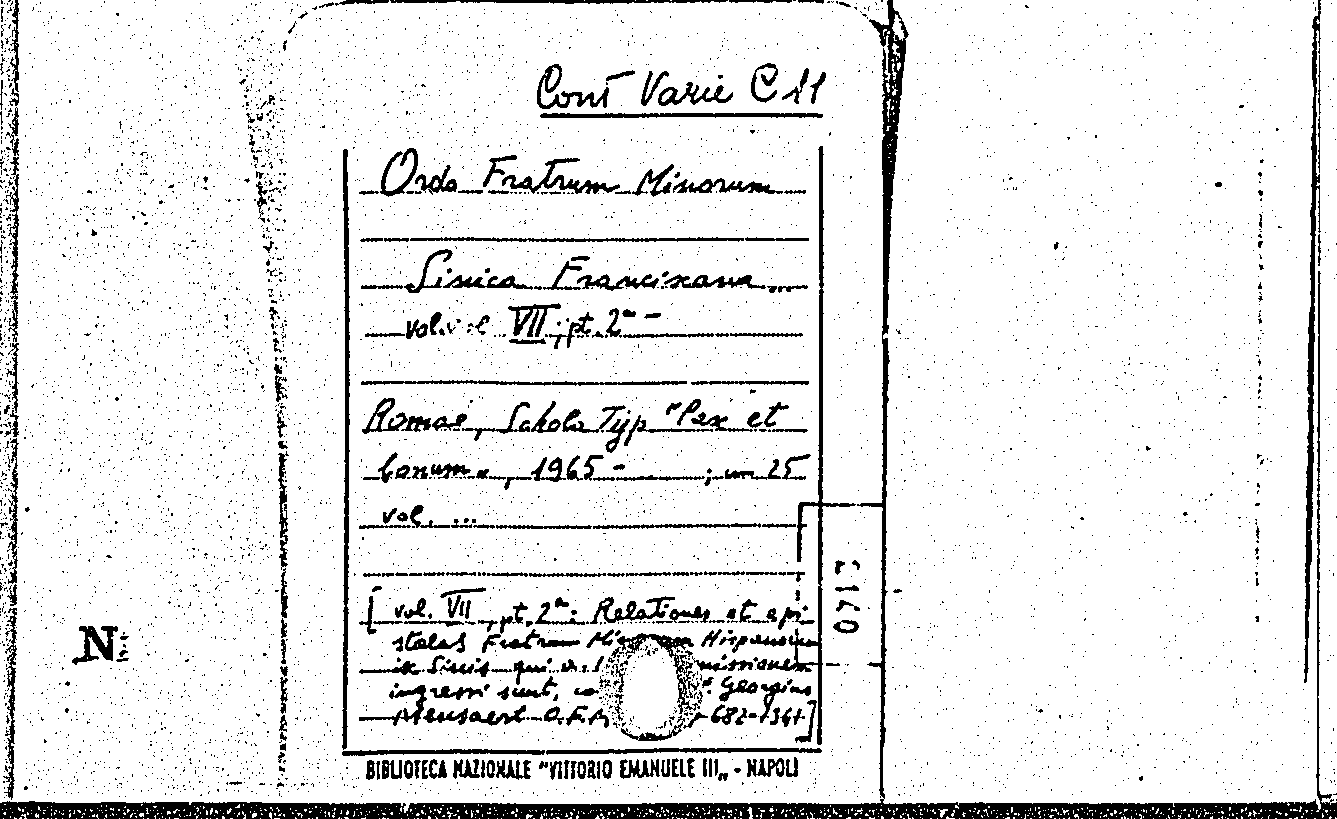 Cont Varie C 11
Ordo Fratrum Minorum
Sinica Franciscana ...
vol. VII, pt. 2ª -
Romae, Schola Typ "Pax et
bonum", 1965 - ; cm 25
vol. ...
[vol. VII, pt. 2ª: Relationes et epi
stolas Fratrum Hispanorum
in Sinis qui missionem
ingressi sunt, Georgius
Mensaert O.F.M. 682-1361]
BIBLIOTECA NAZIONALE "VITTORIO EMANUELE III„ - NAPOLI
N: